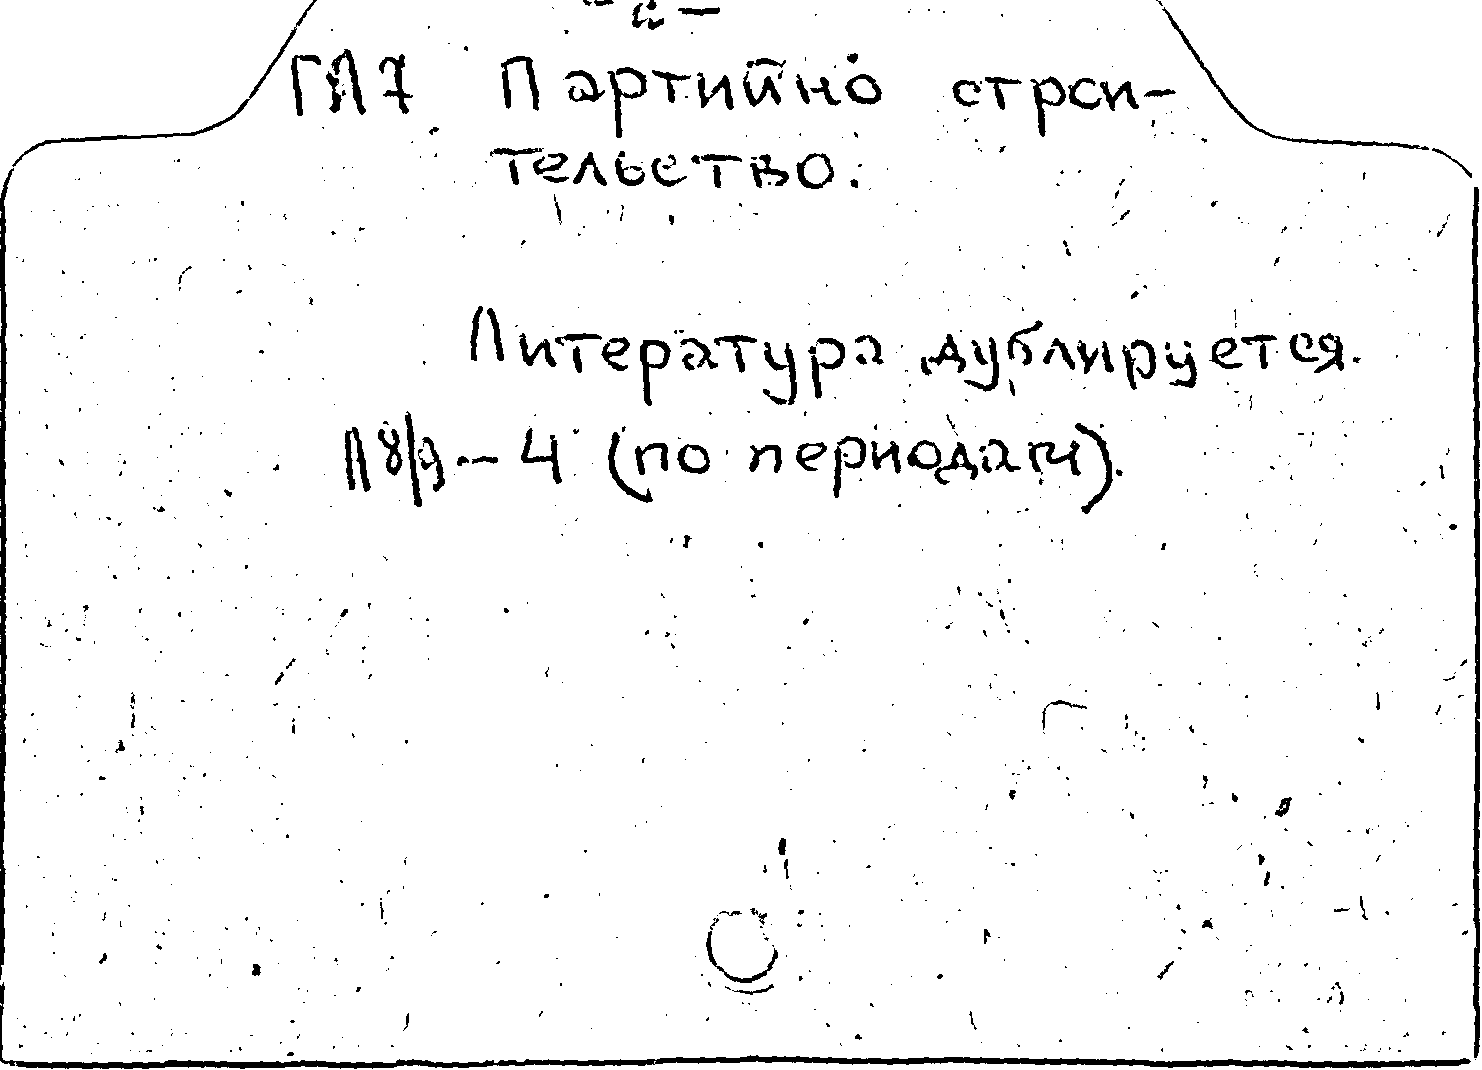 ГП7 Партийно строи-
тельство.
Литература дублируется.
(по периодам).